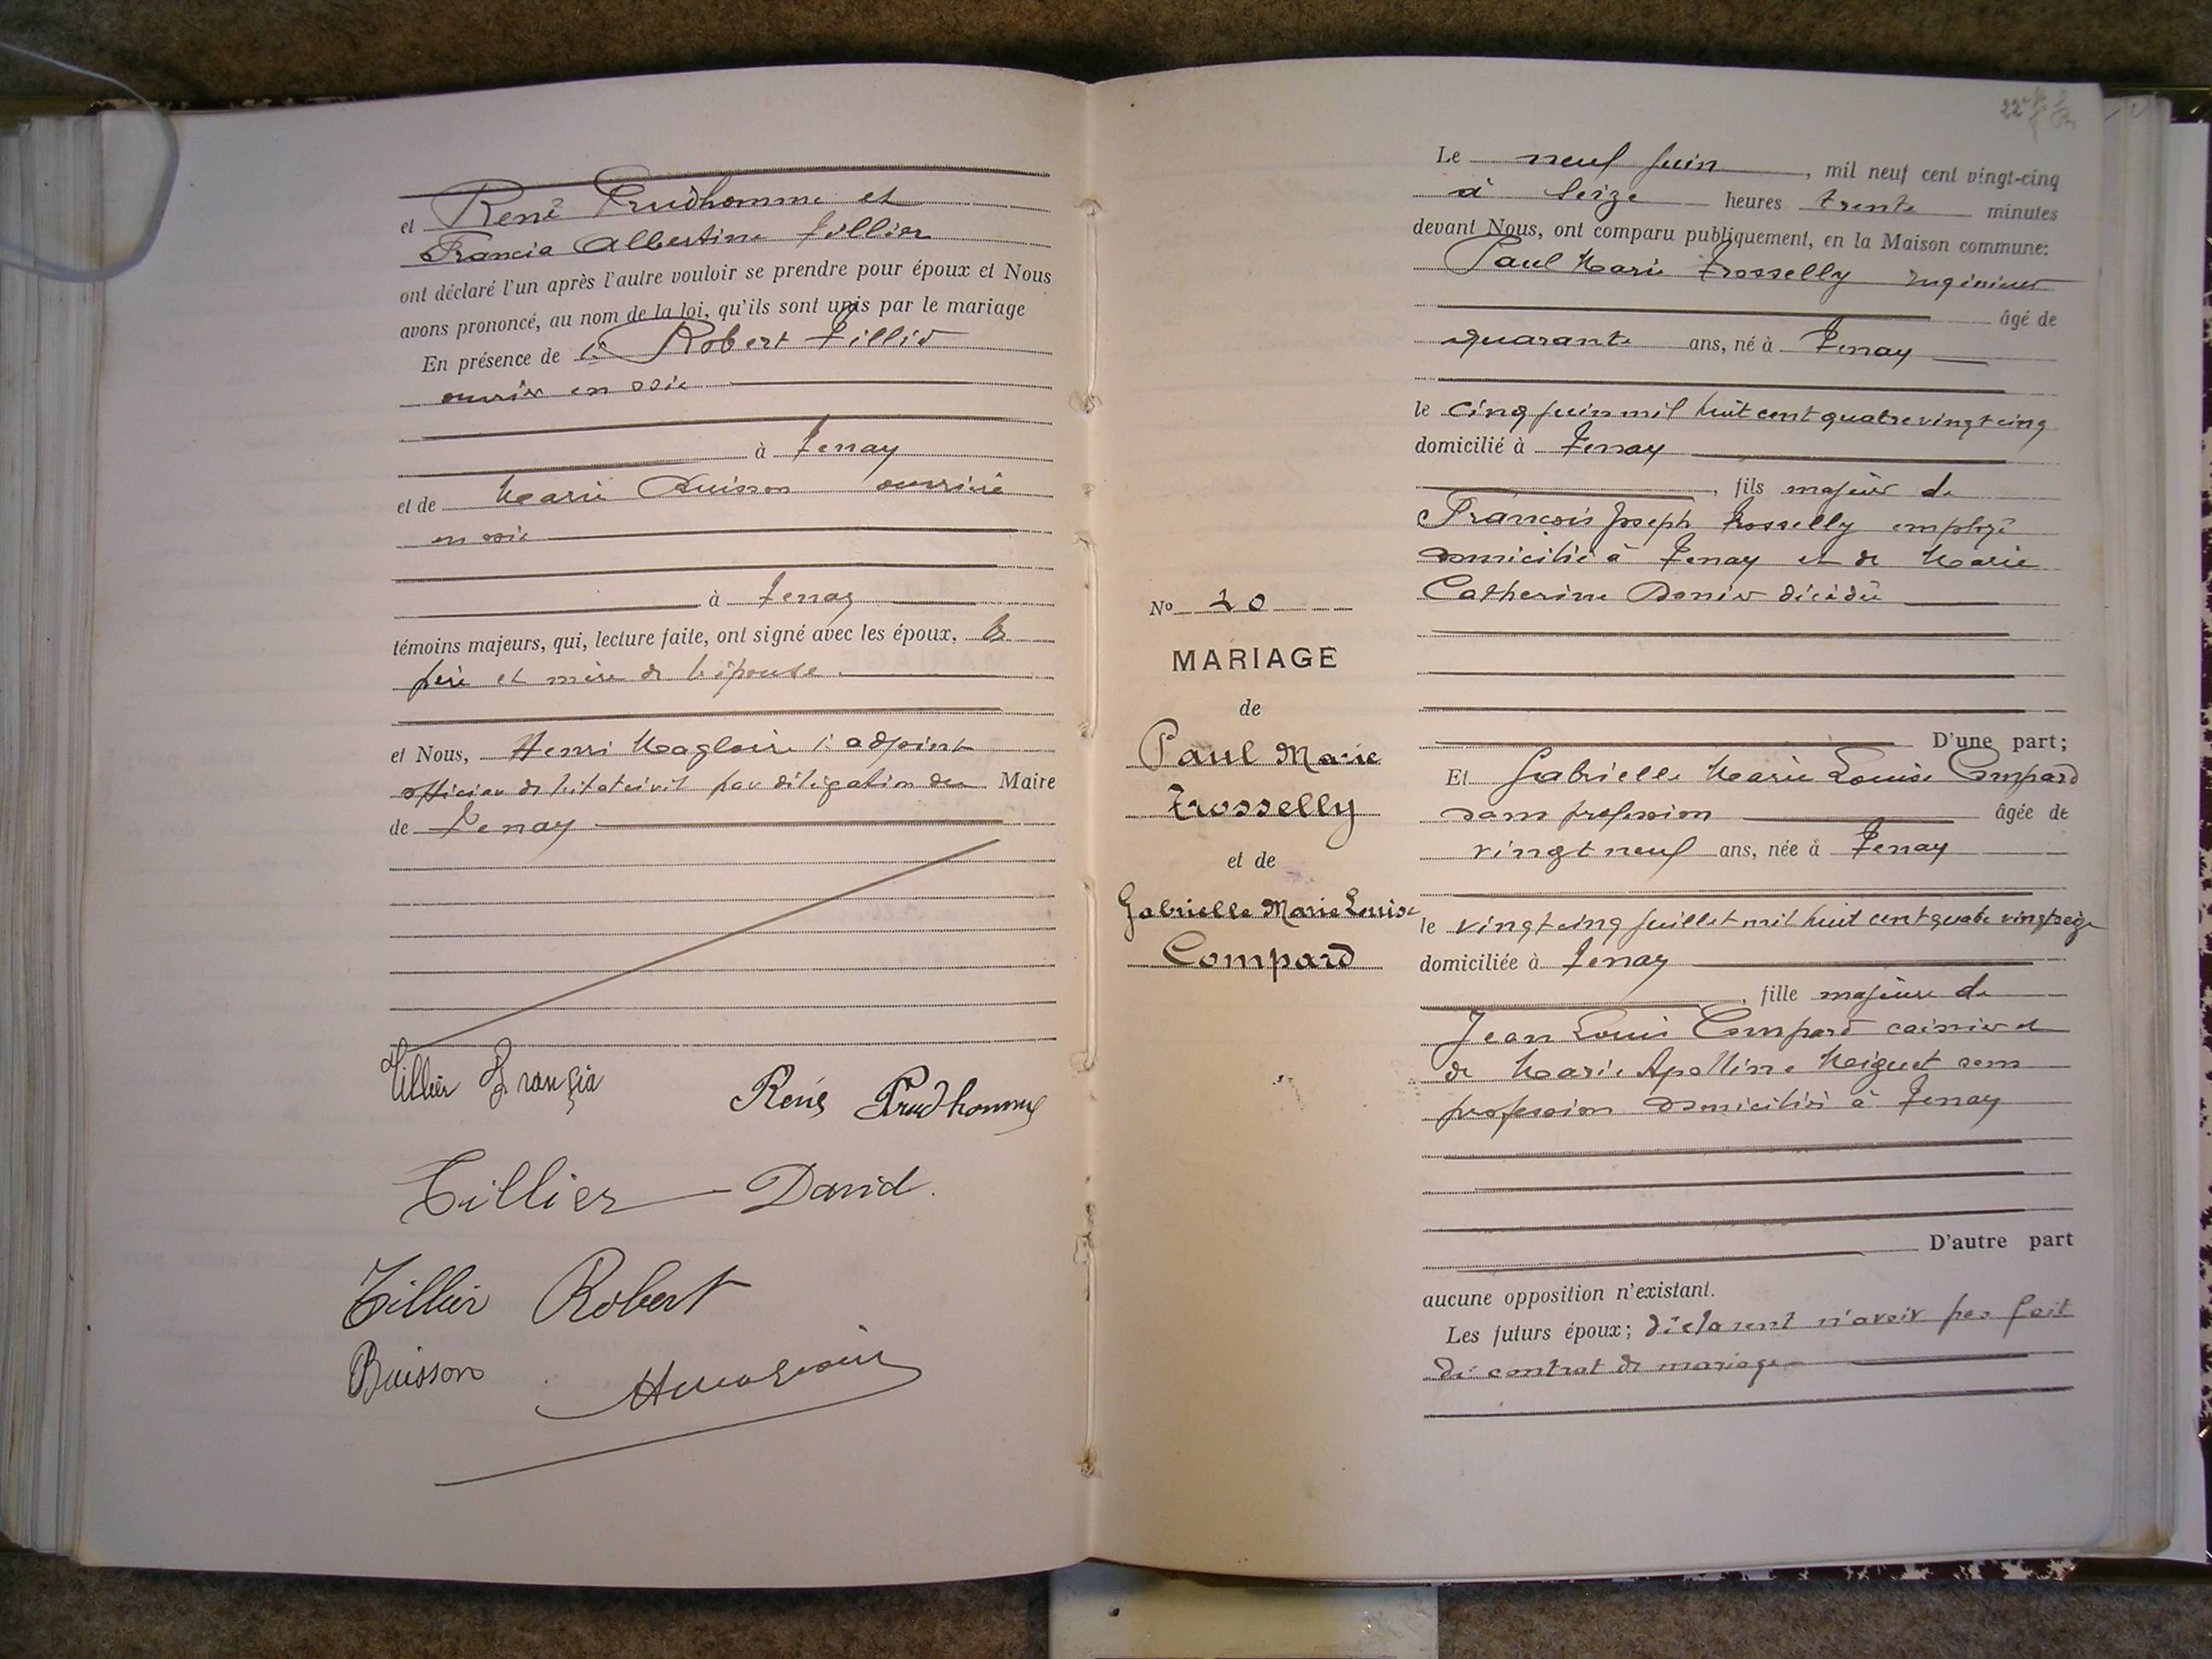 et René Prudhomme et
Francia Albertine Tillier
ont déclaré l'un après l'autre vouloir se prendre pour époux et Nous
avons prononcé, au nom de la loi, qu'ils sont unis par le mariage
En présence de 1° Robert Tillier
ouvrier en soie
à Tenay
et de Marie Buisson ouvrière
en soie
à Tenay
témoins majeurs, qui, lecture faite, ont signé avec les époux, les
père et mère de l'épouse.
et Nous, Henri Magloire 1er adjoint
officier de l'état civil par délégation du Maire
de Tenay
Tillier Francia René Prudhomme
Tillier David.
Tillier Robert
Buisson
Le neuf Juin, mil neuf cent vingt-cinq
à Seize heures trente minutes
devant Nous, ont comparu publiquement, en la Maison commune:
Paul Marie Trosselly Ingénieur
âgé de
quarante ans, né à Tenay
le cinq juin mil huit cent quatre vingt cinq
domicilié à Tenay
, fils majeur de
François Joseph Trosselly employé
domicilié à Tenay et de Marie
Catherine Donier décédée
D'une part;
Et Gabrielle Marie Louise Compard
sans profession âgée de
vingt neuf ans, née à Tenay
le vingt cinq juillet mil huit cent quatre vingt seize
domiciliée à Tenay
, fille majeure de
Jean Louis Compard caissier et
de Marie Apolline Maiguet sans
profession domiciliés à Tenay
D'autre part
aucune opposition n'existant.
Les futurs époux; déclarent n'avoir pas fait
de contrat de mariage
No 20
MARIAGE
de
Paul Marie
Trosselly
et de
Gabrielle Marie Louise
Compard